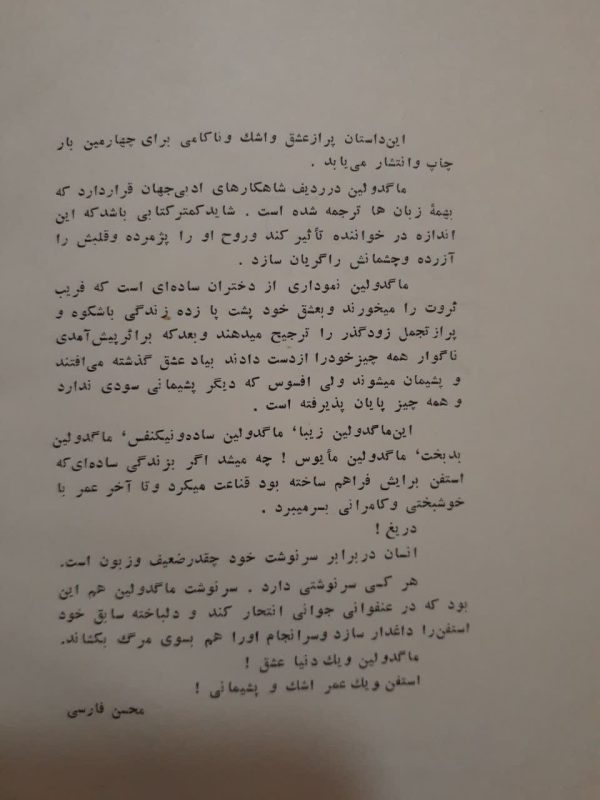 این‌داستان پرازعشق واشك وناکامی برای چهارمین بار
چاپ وانتشار می‌یابد .
ماگدولین درردیف شاهکارهای ادبی‌جهان قراردارد که
بهمهٔ زبان ها ترجمه شده است . شایدکمترکتابی باشدکه این
اندازه در خواننده تأثیر کند وروح او را پژمرده وقلبش را
آزرده وچشمانش راگریان سازد .
ماگدولین نموداری از دختران ساده‌ای است که فریب
ثروت را میخورند وبعشق خود پشت پا زده زندگی باشکوه و
پرازتجمل زودگذر را ترجیح میدهند وبعدکه براثرپیش‌آمدی
ناگوار همه چیزخودرا ازدست دادند بیاد عشق گذشته می‌افتند
و پشیمان میشوند ولی افسوس که دیگر پشیمانی سودی ندارد
و همه چیز پایان پذیرفته است .
این‌ماگدولین زیبا، ماگدولین ساده‌ونیکنفس، ماگدولین
بدبخت، ماگدولین مأیوس ! چه میشد اگر بزندگی ساده‌ای‌که
استفن برایش فراهم ساخته بود قناعت میکرد وتا آخر عمر با
خوشبختی وکامرانی بسرمیبرد .
دریغ !
انسان دربرابر سرنوشت خود چقدرضعیف وزبون است.
هر کسی سرنوشتی دارد . سرنوشت ماگدولین هم این
بود که در عنفوانی جوانی انتحار کند و دلباخته سابق خود
استفن‌را داغدار سازد وسرانجام اورا هم بسوی مرگ بکشاند.
ماگدولین ویك دنیا عشق !
استفن ویك عمر اشك و پشیمانی !
محسن فارسی